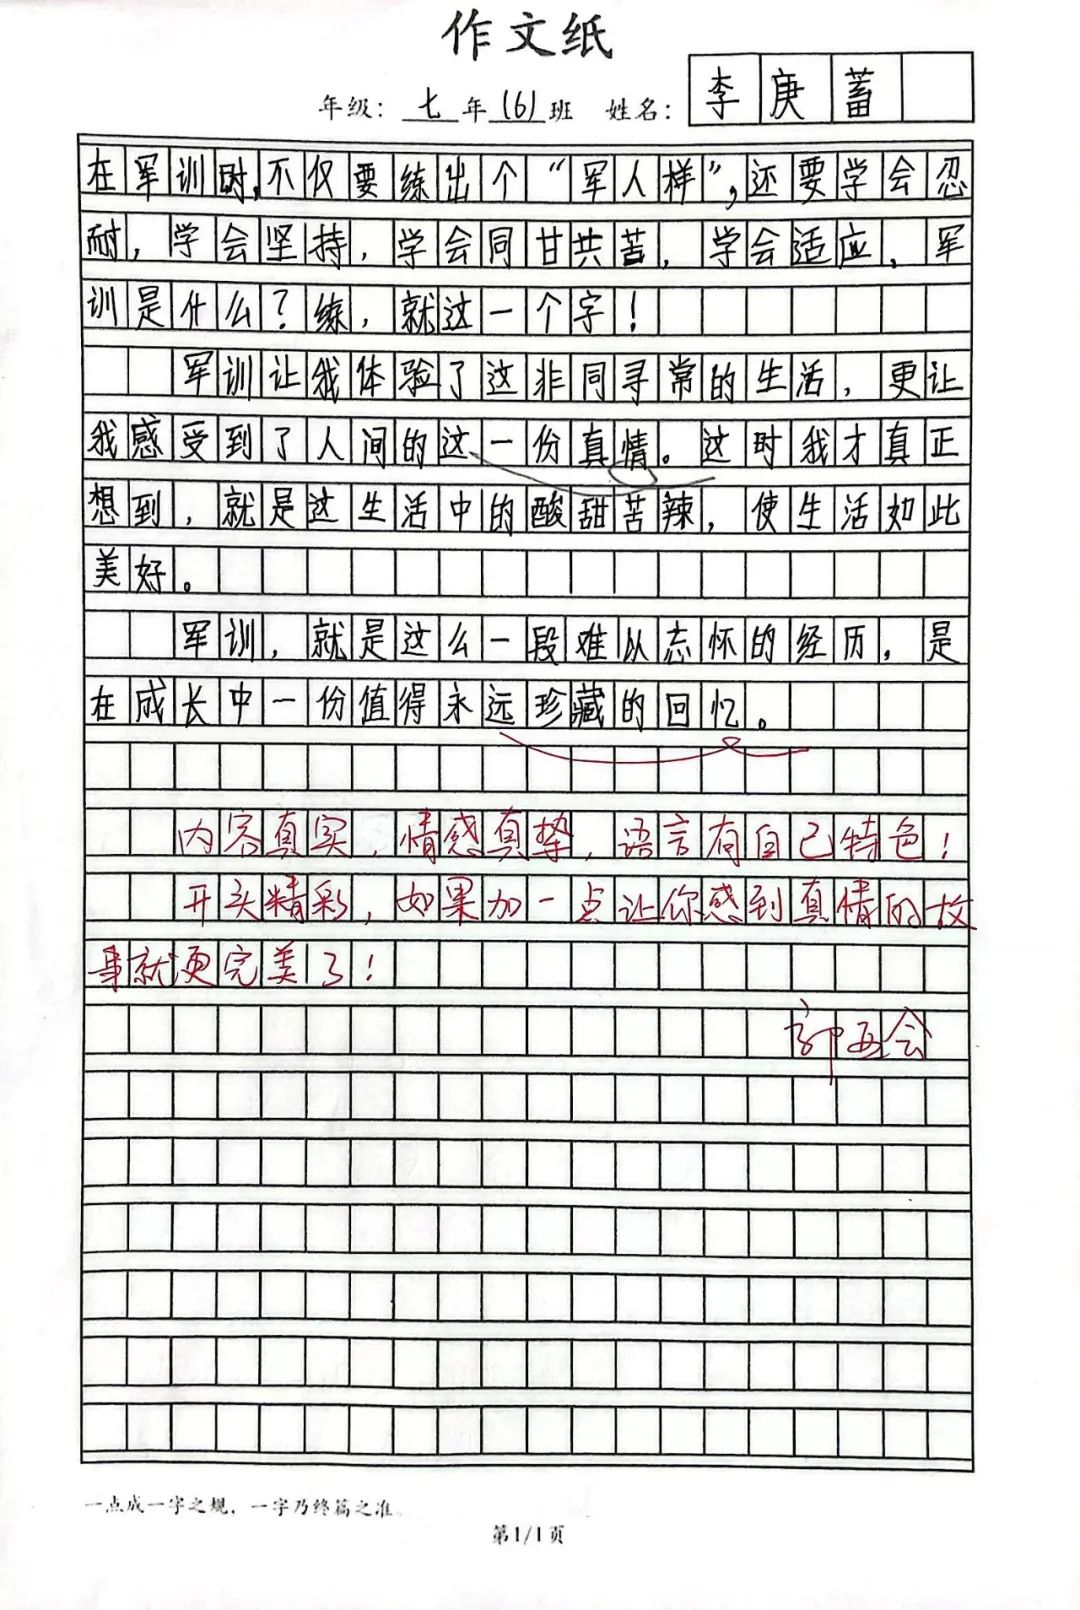 作文纸
年级：七年(6)班 姓名：李庚蓄
在军训时,不仅要练出个“军人样”,还要学会忍
耐，学会坚持，学会同甘共苦，学会适应、军
训是什么？练，就这一个字！
军训让我体验了这非同寻常的生活，更让
我感受到了人间的这一份真情。这时我才真正
想到，就是这生活中的酸甜苦辣，使生活如此
美好。
军训，就是这么一段难以忘怀的经历，是
在成长中一份值得永远珍藏的回忆。
内容真实，情感真挚，语言有自己特色！
开头精彩，如果加一点让你感到真情的故
事就更完美了！
一点成一字之规，一字乃终篇之准。
第1/1页